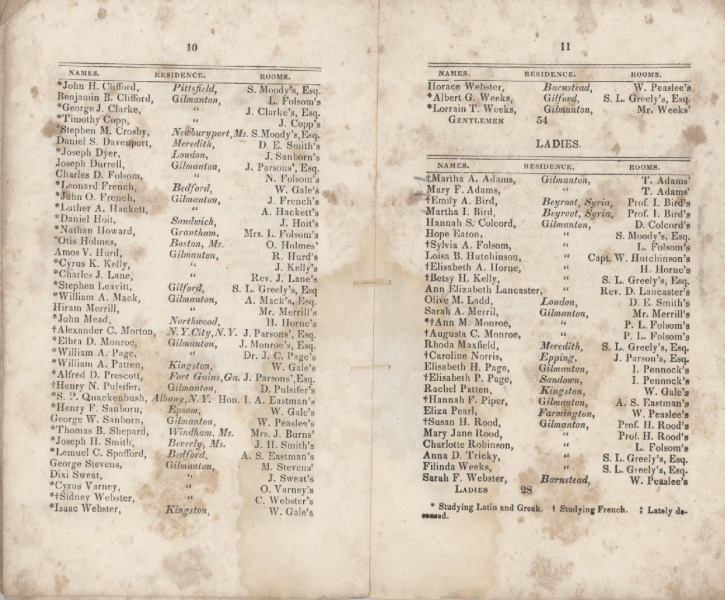 10
NAMES. RESIDENCE. ROOMS.
*John H. Clifford, Pittsfield, S. Moody's, Esq.
Benjamin B. Clifford, Gilmanton, L. Folsom's
*George J. Clarke, " J. Clarke's, Esq.
*Timothy Copp, " J. Copp's
*Stephen M. Crosby, Newburyport, Ms. S. Moody's, Esq.
Daniel S. Davenport, Meredith, D. E. Smith's
*Joseph Dyer, Loudon, J. Sanborn's
Joseph Durrell, Gilmanton, J. Parsons', Esq.
Charles D. Folsom, " N. Folsom's
*Leonard French, Bedford, W. Gale's
*John O. French, Gilmanton, J. French's
*Luther A. Hackett, " A. Hackett's
*Daniel Hoit, Sandwich, J. Hoit's
*Nathan Howard, Grantham, Mrs. L. Folsom's
*Otis Holmes, Boston, Ms. O. Holmes'
Amos V. Hurd, Gilmanton, R. Hurd's
*Cyrus K. Kelly, " J. Kelly's
*Charles J. Lane, " Rev. J. Lane's
*Stephen Leavitt, Gilford, S. L. Greely's, Esq
*William A. Mack, Gilmanton, A. Mack's, Esq.
Hiram Merrill, " Mr. Merrill's
*John Mead, Northwood, H. Horne's
†Alexander C. Morton, N.Y.City, N.Y. J. Parsons', Esq.
*Elbra D. Monroe, Gilmanton, J. Monroe's, Esq.
*William A. Page, " Dr. J. C. Page's
*William A. Patten, Kingston, W. Gale's
*Alfred D. Prescott, Fort Gains, Ga. J. Parsons', Esq.
†Henry N. Pulsifer, Gilmanton, D. Pulsifer's
*S. P. Quackenbush, Albany, N.Y. Hon. I. A. Eastman's
*Henry F. Sanborn, Epsom, W. Gale's
George W. Sanborn, Gilmanton, W. Peaslee's
*Thomas B. Shepard, Windham. Me. Mrs. J. Burns'
*Joseph H. Smith, Beverly, Ms. J. H. Smith's
*Lemuel C. Spofford, Bedford, A. S. Eastman's
George Stevens, Gilmanton, M. Stevens'
Dixi Sweat, " J. Sweat's
*Cyrus Varney, " O. Varney's
*†Sidney Webster, " C. Webster's
*Isaac Webster, Kingston, W. Gale's
11
NAMES. RESIDENCE. ROOMS.
Horace Webster, Barnstead, W. Peaslee's
*Albert G. Weeks, Gilford, S. L. Greely's, Esq.
*Lorrain T. Weeks, Gilmanton, Mr. Weeks'
GENTLEMEN 54
LADIES.
NAMES. RESIDENCE. ROOMS.
†Martha A. Adams, Gilmanton, T. Adams'
Mary F. Adams, " T. Adams'
†Emily A. Bird, Beyroot, Syria, Prof. I. Bird's
Martha I. Bird, Beyroot, Syria, Prof. I. Bird's
Hannah S. Colcord, Gilmanton, D. Colcord's
Hope Eaton " S. Moody's, Esq.
†Sylvia A. Folsom, " L. Folsom's
Loisa B. Hutchinson, " Capt. W. Hutchinson's
†Elisabeth A. Horne, " H. Horne's
†Betsy H. Kelly, " S. L. Greely's, Esq.
Ann Elizabeth Lancaster, " Rev. D. Lancaster's
Olive M. Ladd, Loudon, D. E. Smith's
Sarah A. Merril, Gilmanton, Mr. Merrill's
*†Ann M. Monroe, " P. L. Folsom's
†Augusta C. Monroe, " P. L. Folsom's
Rhoda Maxfield, Meredith, S. L. Greely's, Esq.
†Caroline Norris, Epping, J. Parson's, Esq.
Elisabeth H. Page, Gilmanton, I. Pennock's
†Elisabeth P. Page, Sandown, I. Pennock's
Rachel Patten, Kingston, W. Gale's
†Hannah F. Piper, Gilmanton, A. S. Eastman's
Eliza Pearl, Farmington, W. Peaslee's
†Susan H. Rood, Gilmanton, Prof. H. Rood's
Mary Jane Rood, " Prof. H. Rood's
Charlotte Robinson, " L. Folsom's
Anna D. Tricky, " S. L. Greely's, Esq.
Filinda Weeks, " S. L. Greely's, Esq.
Sarah F. Webster, Barnstead, W. Peaslee's
LADIES 28
* Studying Latin and Greek. † Studying French. ‡ Lately de-
ceased.